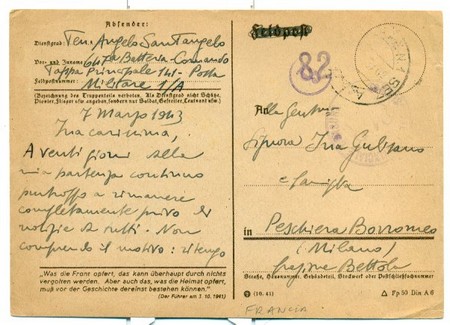 Absender:
Dienstgrad: Ten. Angelo Santangelo
Vor- und Zuname 647a Batteria - Comando
Feldpostnummer: Tappa Principale 141 - Posta
Militare 1/A
(Bezeichnung des Truppenteils verboten. Als Dienstgrad nicht Schütze,
Pionier, Flieger usw. angeben, sondern nur Soldat, Gefreiter, Leutnant usw.)
7 Marzo 1943
Ina carissima,
A venti giorni dalla
mia partenza continuo
purtroppo a rimanere
completamente privo di
notizie di tutti. Non
comprendo il motivo: ritengo
„Was die Front opfert, das kann überhaupt durch nichts
vergolten werden. Aber auch das, was die Heimat opfert,
muß vor der Geschichte dereinst bestehen können."
(Der Führer am 3.10.1941)
Feldpost
82
Alla Gentile
Signora Ina
e famiglia
in Peschiera Borromeo
(Milano)
frazione Bettola
Straße, Hausnummer, Gebäudeteil, Stockwerk oder Postschließfachnummer
(10. 41)
Fp 50 Din A 6
FRANCIA